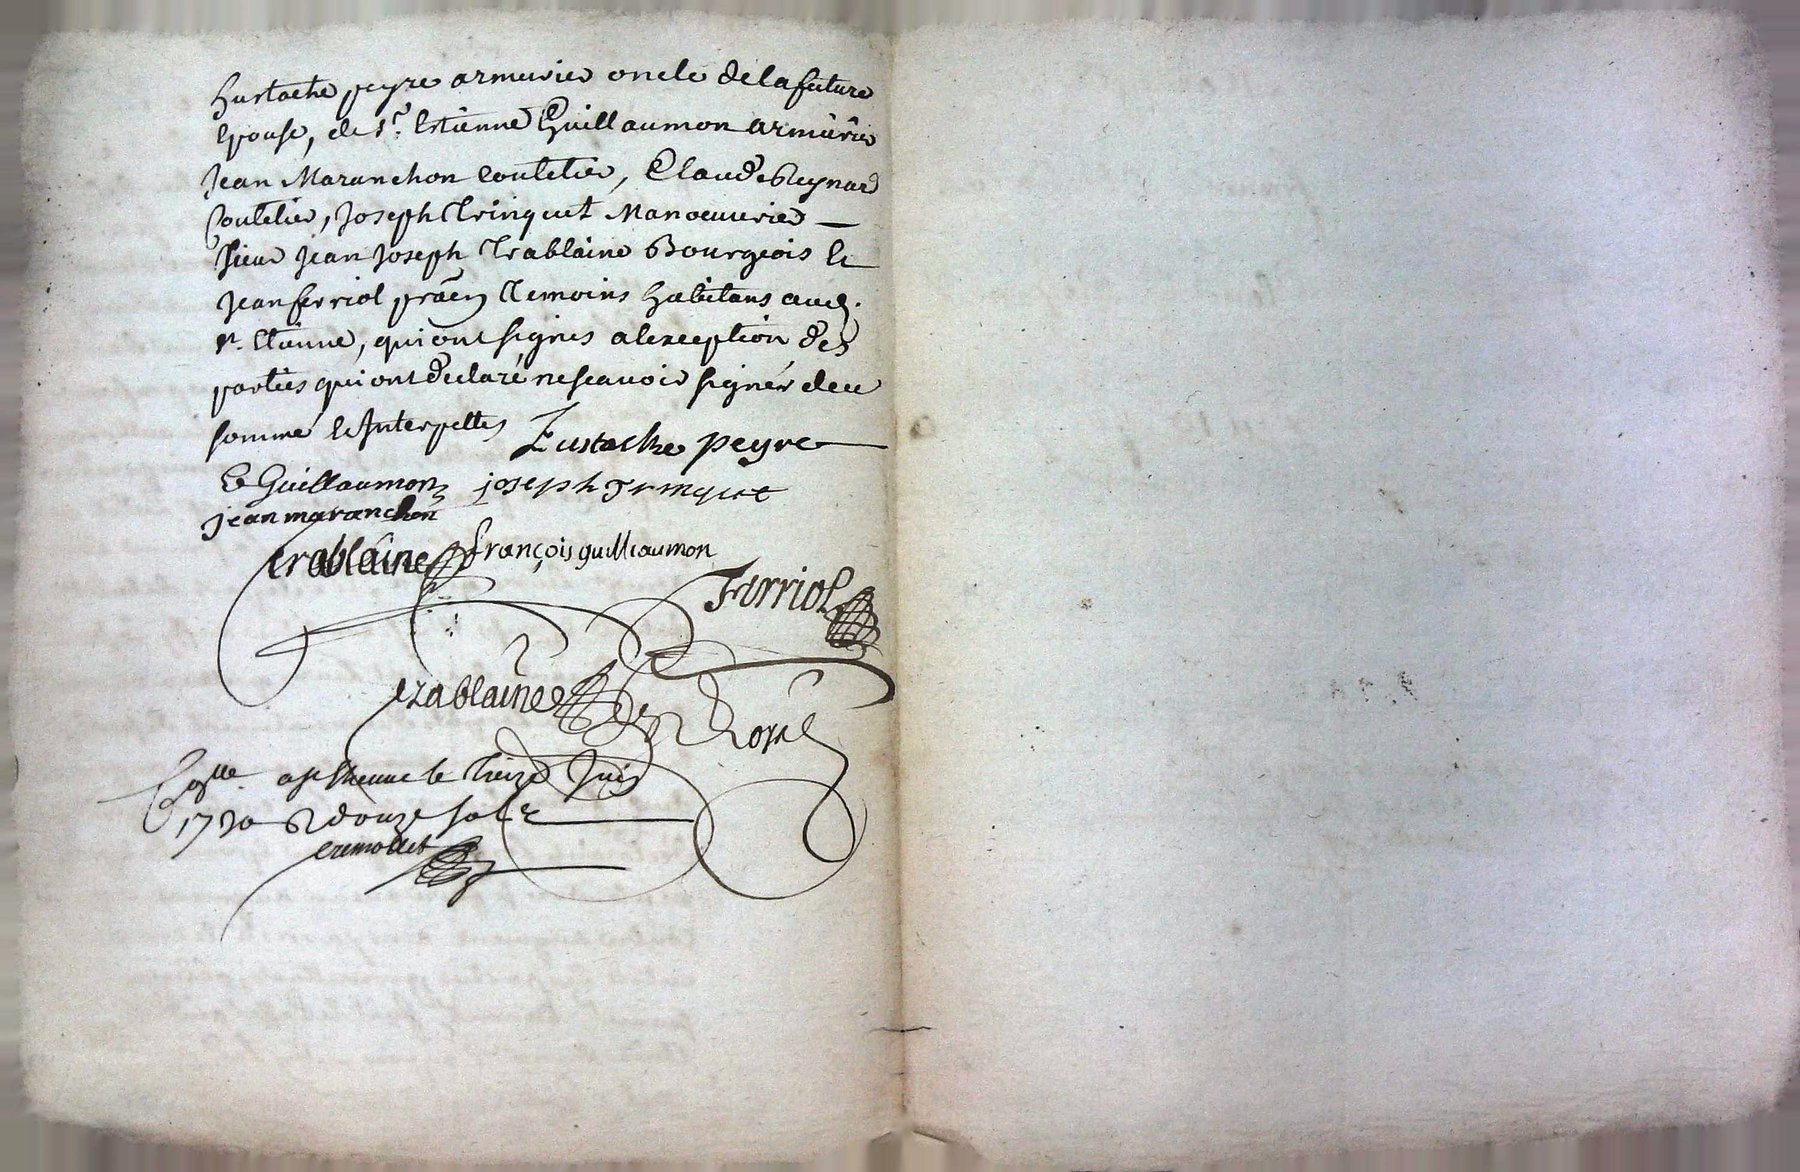 Eustache peyre armurier oncle de la future
Epouse, de Sr. Estienne Guillaumon armurier
Jean Maranchon Coutelier, Claude Reynard
Coutelier, Joseph Trinquet Manoeuvrier —
Sieur Jean Joseph Trablaine Bourgeois Et
Jean ferriol pra͠en Temoins habitans aud.
St. Etienne, qui ont signés a lexception des
parties qui ont declaré ne scavoir signer de ce
sommé & Interpellés Eustache peyre
E Guillaumon joseph trinquet
jean maranchon
trablaîne françois guilleaumon
Ferriol
trablaine
Con.lle a St Etienne le Treize Juin
1730 R douze sols